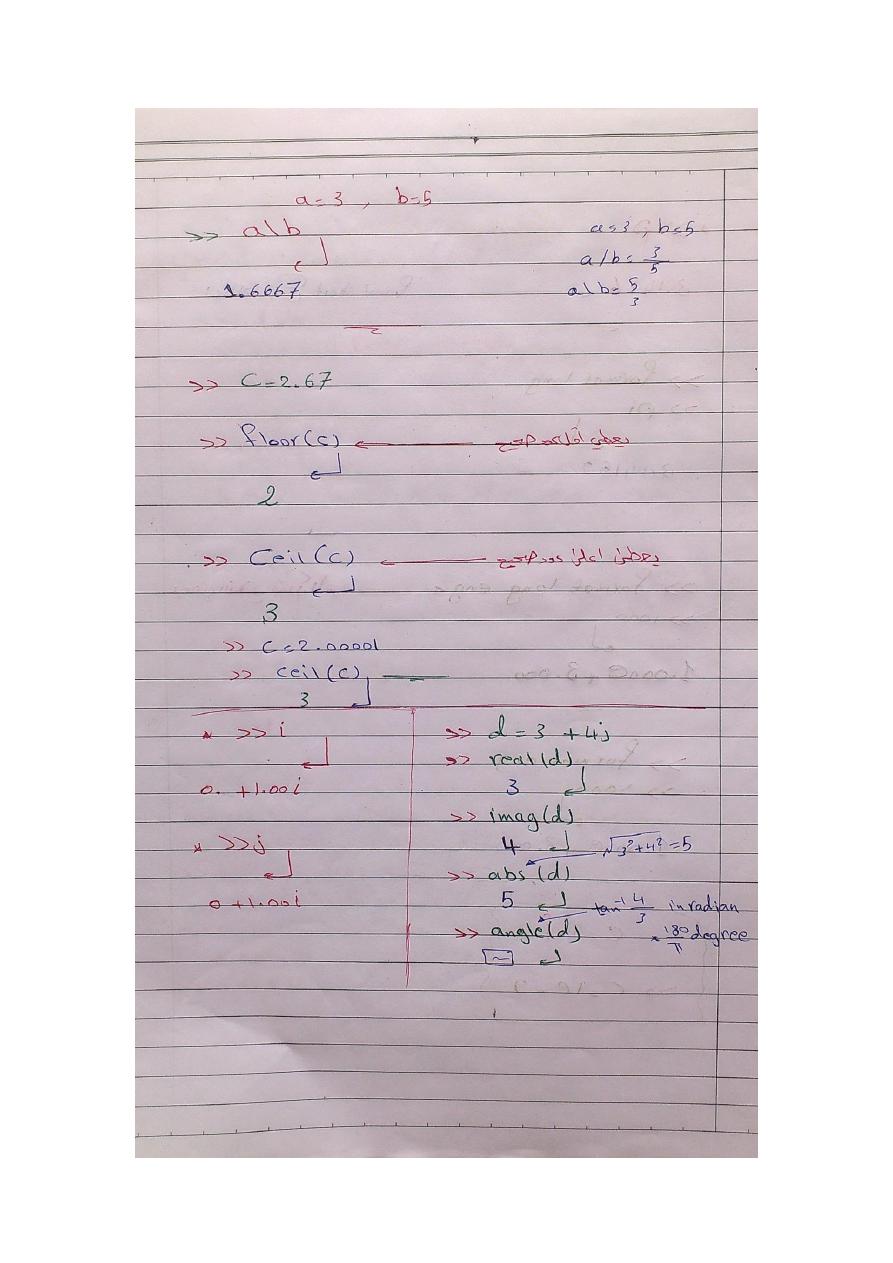 a=3 , b=5
>> a\b
1.6667
a=3 , b=5
a/b= 3/5
a\b= 5/3
>> C=2.67
>> floor(c)
يعطي أقل عدد صحيح
2
>> Ceil(c)
يعطي اعلى عدد صحيح
3
>> C=2.00001
>> ceil(c)
3
* >> i
0. +1.00i
* >> j
0 +1.00i
>> d = 3 +4j
>> real(d)
3
>> imag(d)
4
√3²+4² =5
>> abs(d)
5
tan⁻¹ 4/3 in radian
>> angle(d)
* 180/π degree
~